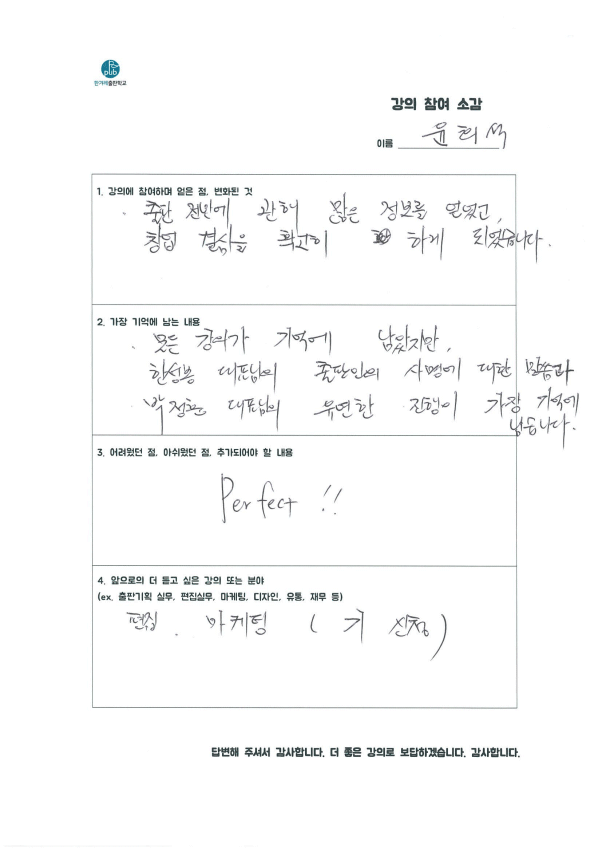 pub
한겨레출판학교
강의 참여 소감
이름 윤희석
1. 강의에 참여하며 얻은 점, 변화된 것
. 출판 전반에 관해 많은 정보를 얻었고,
창업 결심을 확고히 하게 되었습니다.
2. 가장 기억에 남는 내용
. 모든 강의가 기억에 남았지만,
한성봉 대표님의 출판인의 사명에 대한 말씀과
박정훈 대표님의 유연한 진행이 가장 기억에
남습니다.
3. 어려웠던 점, 아쉬웠던 점, 추가되어야 할 내용
Perfect !!
4. 앞으로의 더 듣고 싶은 강의 또는 분야
(ex. 출판기획 실무, 편집실무, 마케팅, 디자인, 유통, 재무 등)
편집. 마케팅 (기 신청)
답변해 주셔서 감사합니다. 더 좋은 강의로 보답하겠습니다. 감사합니다.